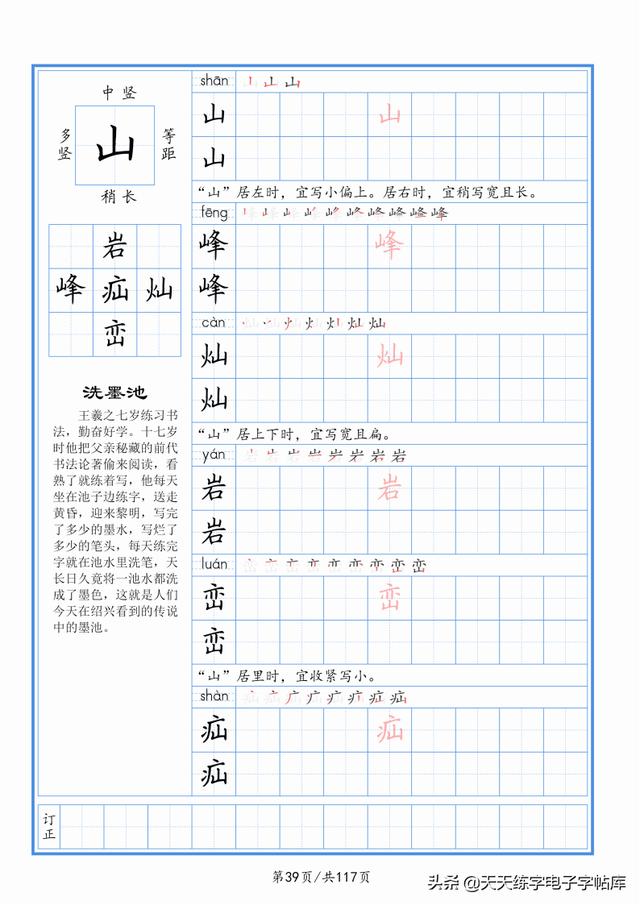 中竖
多竖
山
等距
稍长
岩
峰 疝 灿
峦
洗墨池
王羲之七岁练习书
法，勤奋好学。十七岁
时他把父亲秘藏的前代
书法论著偷来阅读，看
熟了就练着写，他每天
坐在池子边练字，送走
黄昏，迎来黎明，写完
了多少的墨水，写烂了
多少的笔头，每天练完
字就在池水里洗笔，天
长日久竟将一池水都洗
成了墨色，这就是人们
今天在绍兴看到的传说
中的墨池。
shān
山 山
山
“山”居左时，宜写小偏上。居右时，宜稍写宽且长。
fēng
峰 峰
峰
càn
灿 灿
灿
“山”居上下时，宜写宽且扁。
yán
岩 岩
岩
luán
峦 峦
峦
“山”居里时，宜收紧写小。
shàn
疝 疝
疝
订正
第39页/共117页
头条 @天天练字电子字帖库